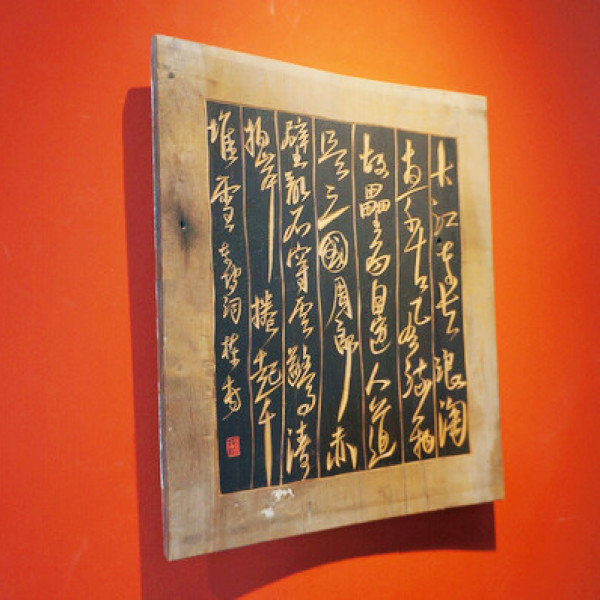 大江东去浪淘
尽千古风流人物
故壘西邊人道
是三國周郎赤
壁亂石穿雲驚濤
拍岸捲起千
堆雪东坡词